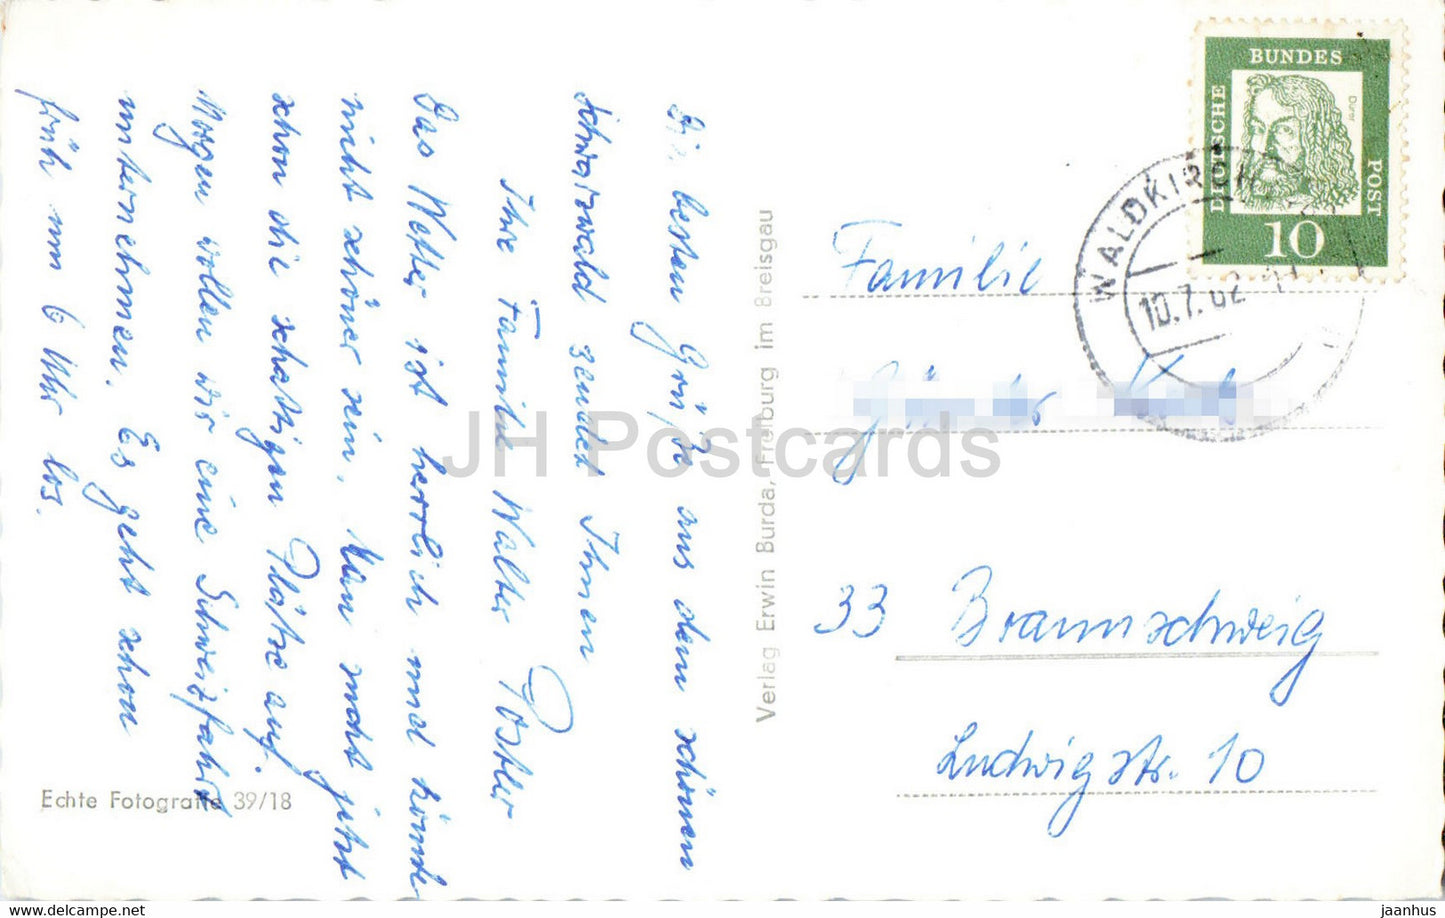 Die besten Grüße aus dem schönen
Schwarzwald sendet Ihnen
Ihre Familie Walter Poster
Das Wetter ist herrlich und könnte
nicht schöner sein. Man sucht jetzt
schon die schattigen Plätze auf.
Morgen wollen wir eine Schweizfahrt
unternehmen. Es geht schon
früh um 6 Uhr los.
Echte Fotografie 39/18
Verlag Erwin Burda, Freiburg im Breisgau
DEUTSCHE
BUNDES
POST
Dürer
10
WALDKIRCH
10.7.62
Familie
33 Braunschweig
Ludwigstr. 10
JH Postcards
https://www.delcampe.net
jaanhus